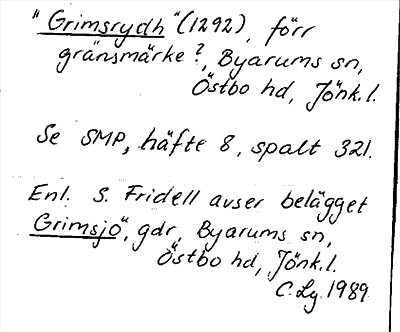 "Grimsrydh" (1292), förr
gränsmärke?, Byarums sn,
Östbo hd, Jönk. l.
Se SMP, häfte 8, spalt 321.
Enl. S. Fridell avser belägget
Grimsjö, gdr, Byarums sn,
Östbo hd, Jönk. l.
C. Lg. 1989